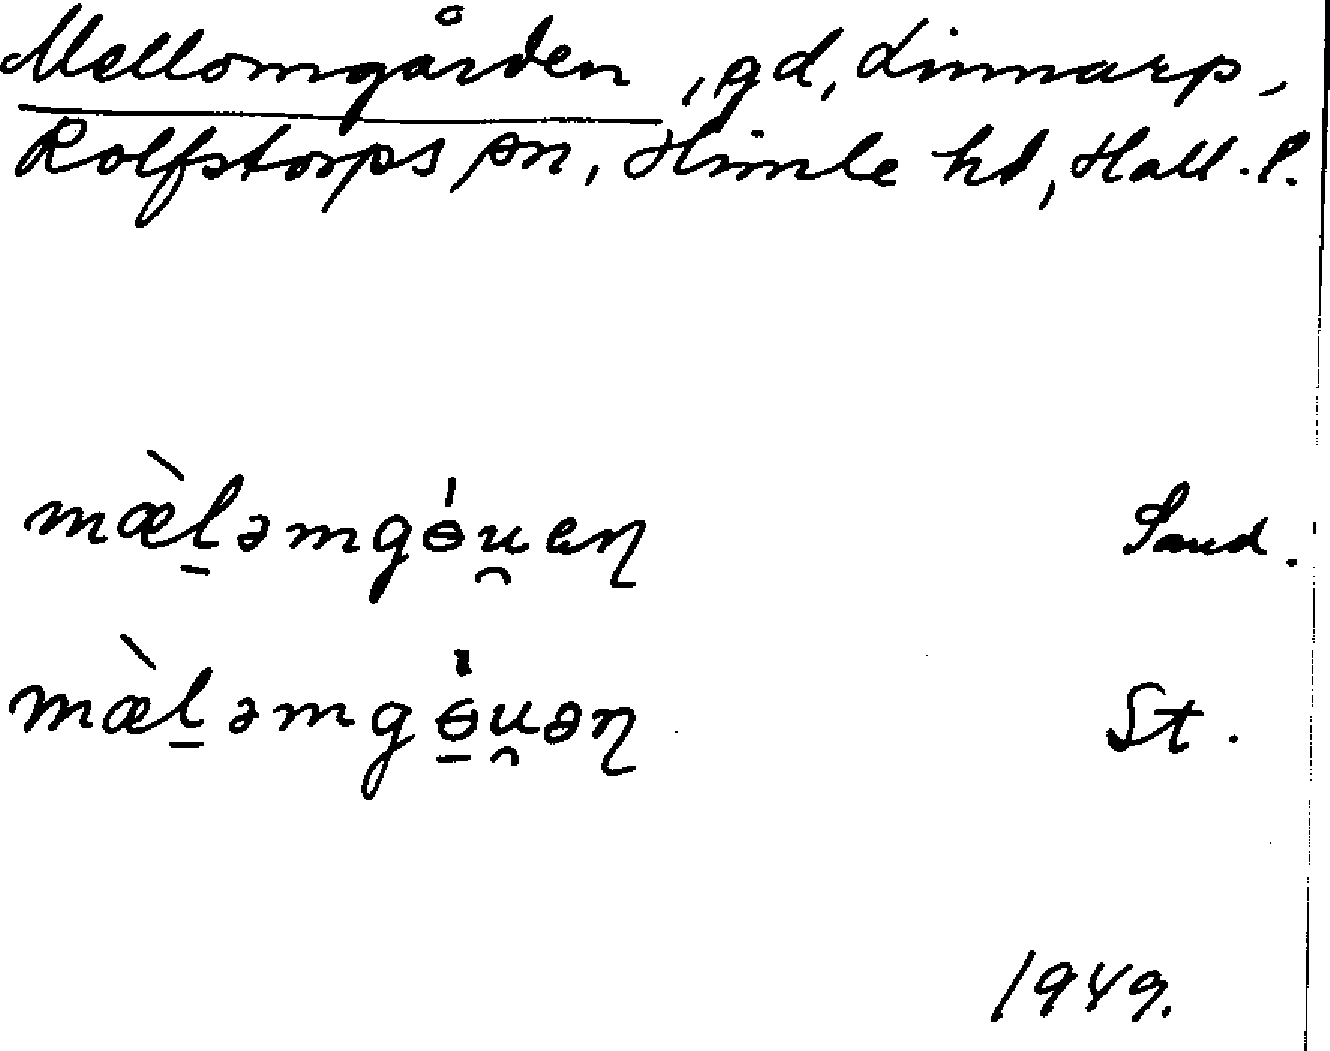 Mellomgården, gd, Linnarp,
Rolfstorps sn, Himle hd, Hall. l.
mæ̀l̠əmgɵ́u̯en̡ Sand.
mæ̀l̠əmgɵ̠́u̯ən̡ St.
1949.